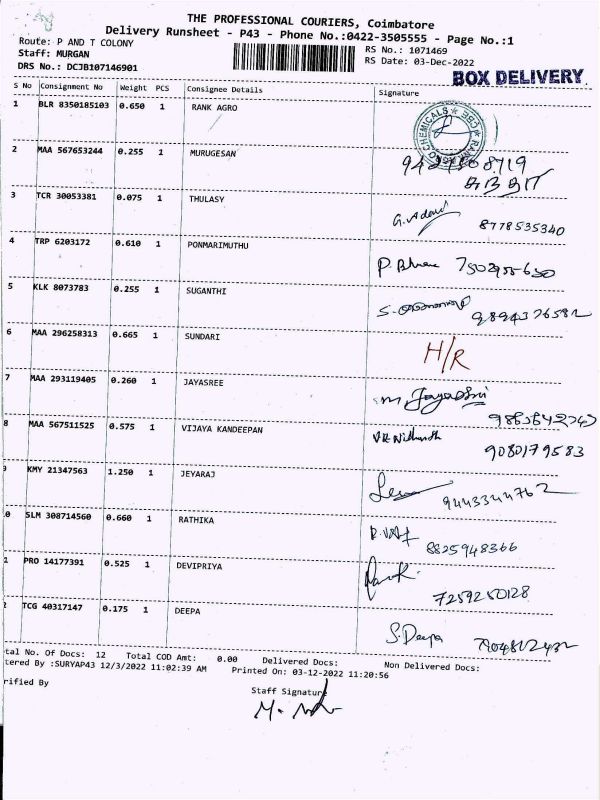 THE PROFESSIONAL COURIERS, Coimbatore
Delivery Runsheet - P43 - Phone No.:0422-3505555 - Page No.:1
Route: P AND T COLONY
RS No.: 1071469
Staff: MURGAN
RS Date: 03-Dec-2022
DRS No.: DCJB107146901
BOX DELIVERY
S No Consignment No Weight PCS Consignee Details Signature
1 BLR 8350185103 0.650 1 RANK AGRO
CHEMICALS
2 MAA 567653244 0.255 1 MURUGESAN
3 TCR 30053381 0.075 1 THULASY
8778535340
4 TRP 6203172 0.610 1 PONMARIMUTHU
5 KLK 8073783 0.255 1 SUGANTHI
9894376582
6 MAA 296258313 0.665 1 SUNDARI H/R
7 MAA 293119405 0.260 1 JAYASREE
8 MAA 567511525 0.575 1 VIJAYA KANDEEPAN
9080179583
KMY 21347563 1.250 1 JEYARAJ
9443344762
0 SLM 308714560 0.660 1 RATHIKA
8825948366
1 PRO 14177391 0.525 1 DEVIPRIYA
7259250128
TCG 40317147 0.175 1 DEEPA S.Deepa
tal No. Of Docs: 12 Total COD Amt: 0.00 Delivered Docs: Non Delivered Docs:
tered By :SURYAP43 12/3/2022 11:02:39 AM Printed On: 03-12-2022 11:20:56
rified By
Staff Signature